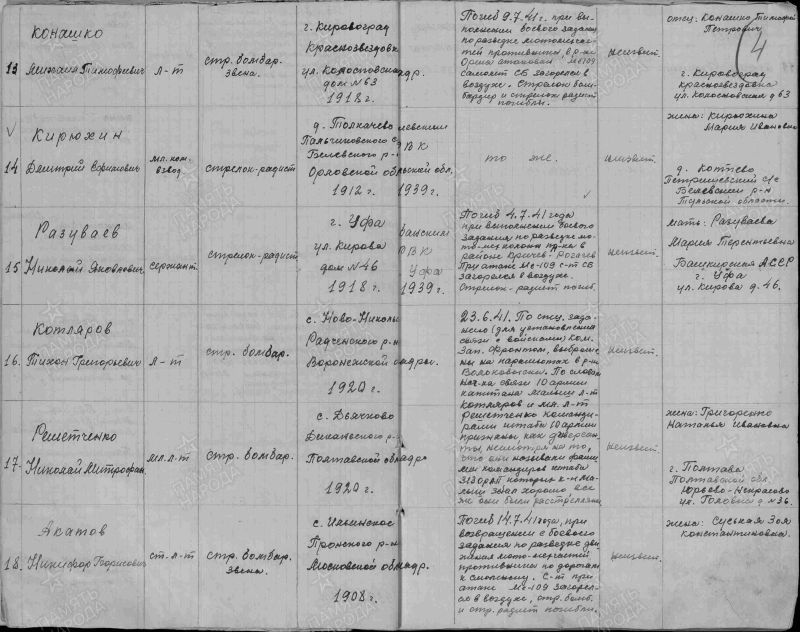 4
КОНАШКО
13 Михаил Тимофеевич
л-т
стр. бомбар.
звена.
г. Кировоград
Краснозвездовк
ул. Колостовская
дом №63
1918 г.
кадр.
Погиб 9.7.41 г. при вы-
полнении боевого задания
по разведке мотомехчас-
тей противника в р-не
Орша атакован Ме-109
самолет СБ загорелся в
воздухе. Стрелок бом-
бардир и стрелок радист
погибли.
неизвест.
отец: Конашко Тимофей
Петрович
г. Кировоград
Краснозвездовка
ул. Колостовская д 63
Кирюхин
14 Дмитрий Ефимович
мл. ком.
взвод.
стрелок-радист
д. Толкачево
Белевского р-н
Орловской обл.
1912 г.
РВК
1939 г.
то же.
неизвест.
жена: Кирюхина
Мария Ивановна
д. Коттево
Петрищевский с/с
Белевский р-н
Тульской области.
Разуваев
15 Николай Яковлевич
сержант.
стрелок-радист
г. Уфа
ул. Кирова
дом №46
1918 г.
РВК
Уфа
1939 г.
Погиб 4.7.41 года
при выполнении боевого
задания по разведке мо-
то-мех колонн пр-ка в
районе Бричев-Рогачев
При атаке Ме-109 с-т СБ
загорелся в воздухе.
Стрелок-радист погиб.
неизвест.
мать: Разуваева
Мария Терентьевна
Башкирская АССР
г. Уфа
ул. Кирова д. 46.
Котляров
16. Тихон Григорьевич
л-т
стр. бомбар.
с. Ново-Николь
Радченского р-н
Воронежской
1920 г.
кадров.
23.6.41. По спец. зада-
нию (для установления
связи с войсками) Ком.
Зап. Фронтом, выброше-
ны на парашютах в р-н
Волковыски. По словам
нач-ка связи 10 армии
капитана Малыш л-т
Котляров и мл. л-т
Решетченко команди-
рами штаба 10 армии
признаны, как диверсан-
ты, несмотря на то,
что они называли фами-
лии командиров штаба
313 ОРАП которых к-н Ма-
лыш знал хорошо все
же они были расстреляны
неизвест.
Решетченко
17. Николай Митрофан.
мл. л-т
стр. бомбар.
с. Дьячково
Диканьского р-
Полтавской обл
1920 г.
кадр.
неизвест.
жена: Григоренко
Наталья Ивановна
г. Полтава
Полтавской обл.
Юрьево-Некрасово
ул. Головки д №36.
Акатов
18. Никифор Борисович
ст. л-т
стр. бомбар.
звена.
с. Ильинское
Пронского р-н
Московской обл
1908 г.
кадр.
Погиб 14.7.41 года, при
возвращении с боевого
задания по разведке дви
жения мото-мехчастей
противника по дорогам
к Смоленску. С-т при
атаке Ме-109 загорел-
ся в воздухе, стр. бомб.
и стр. радист погибли.
неизвест.
жена: Суськая Зоя
Константиновна.
ПАМЯТЬ
НАРОДА